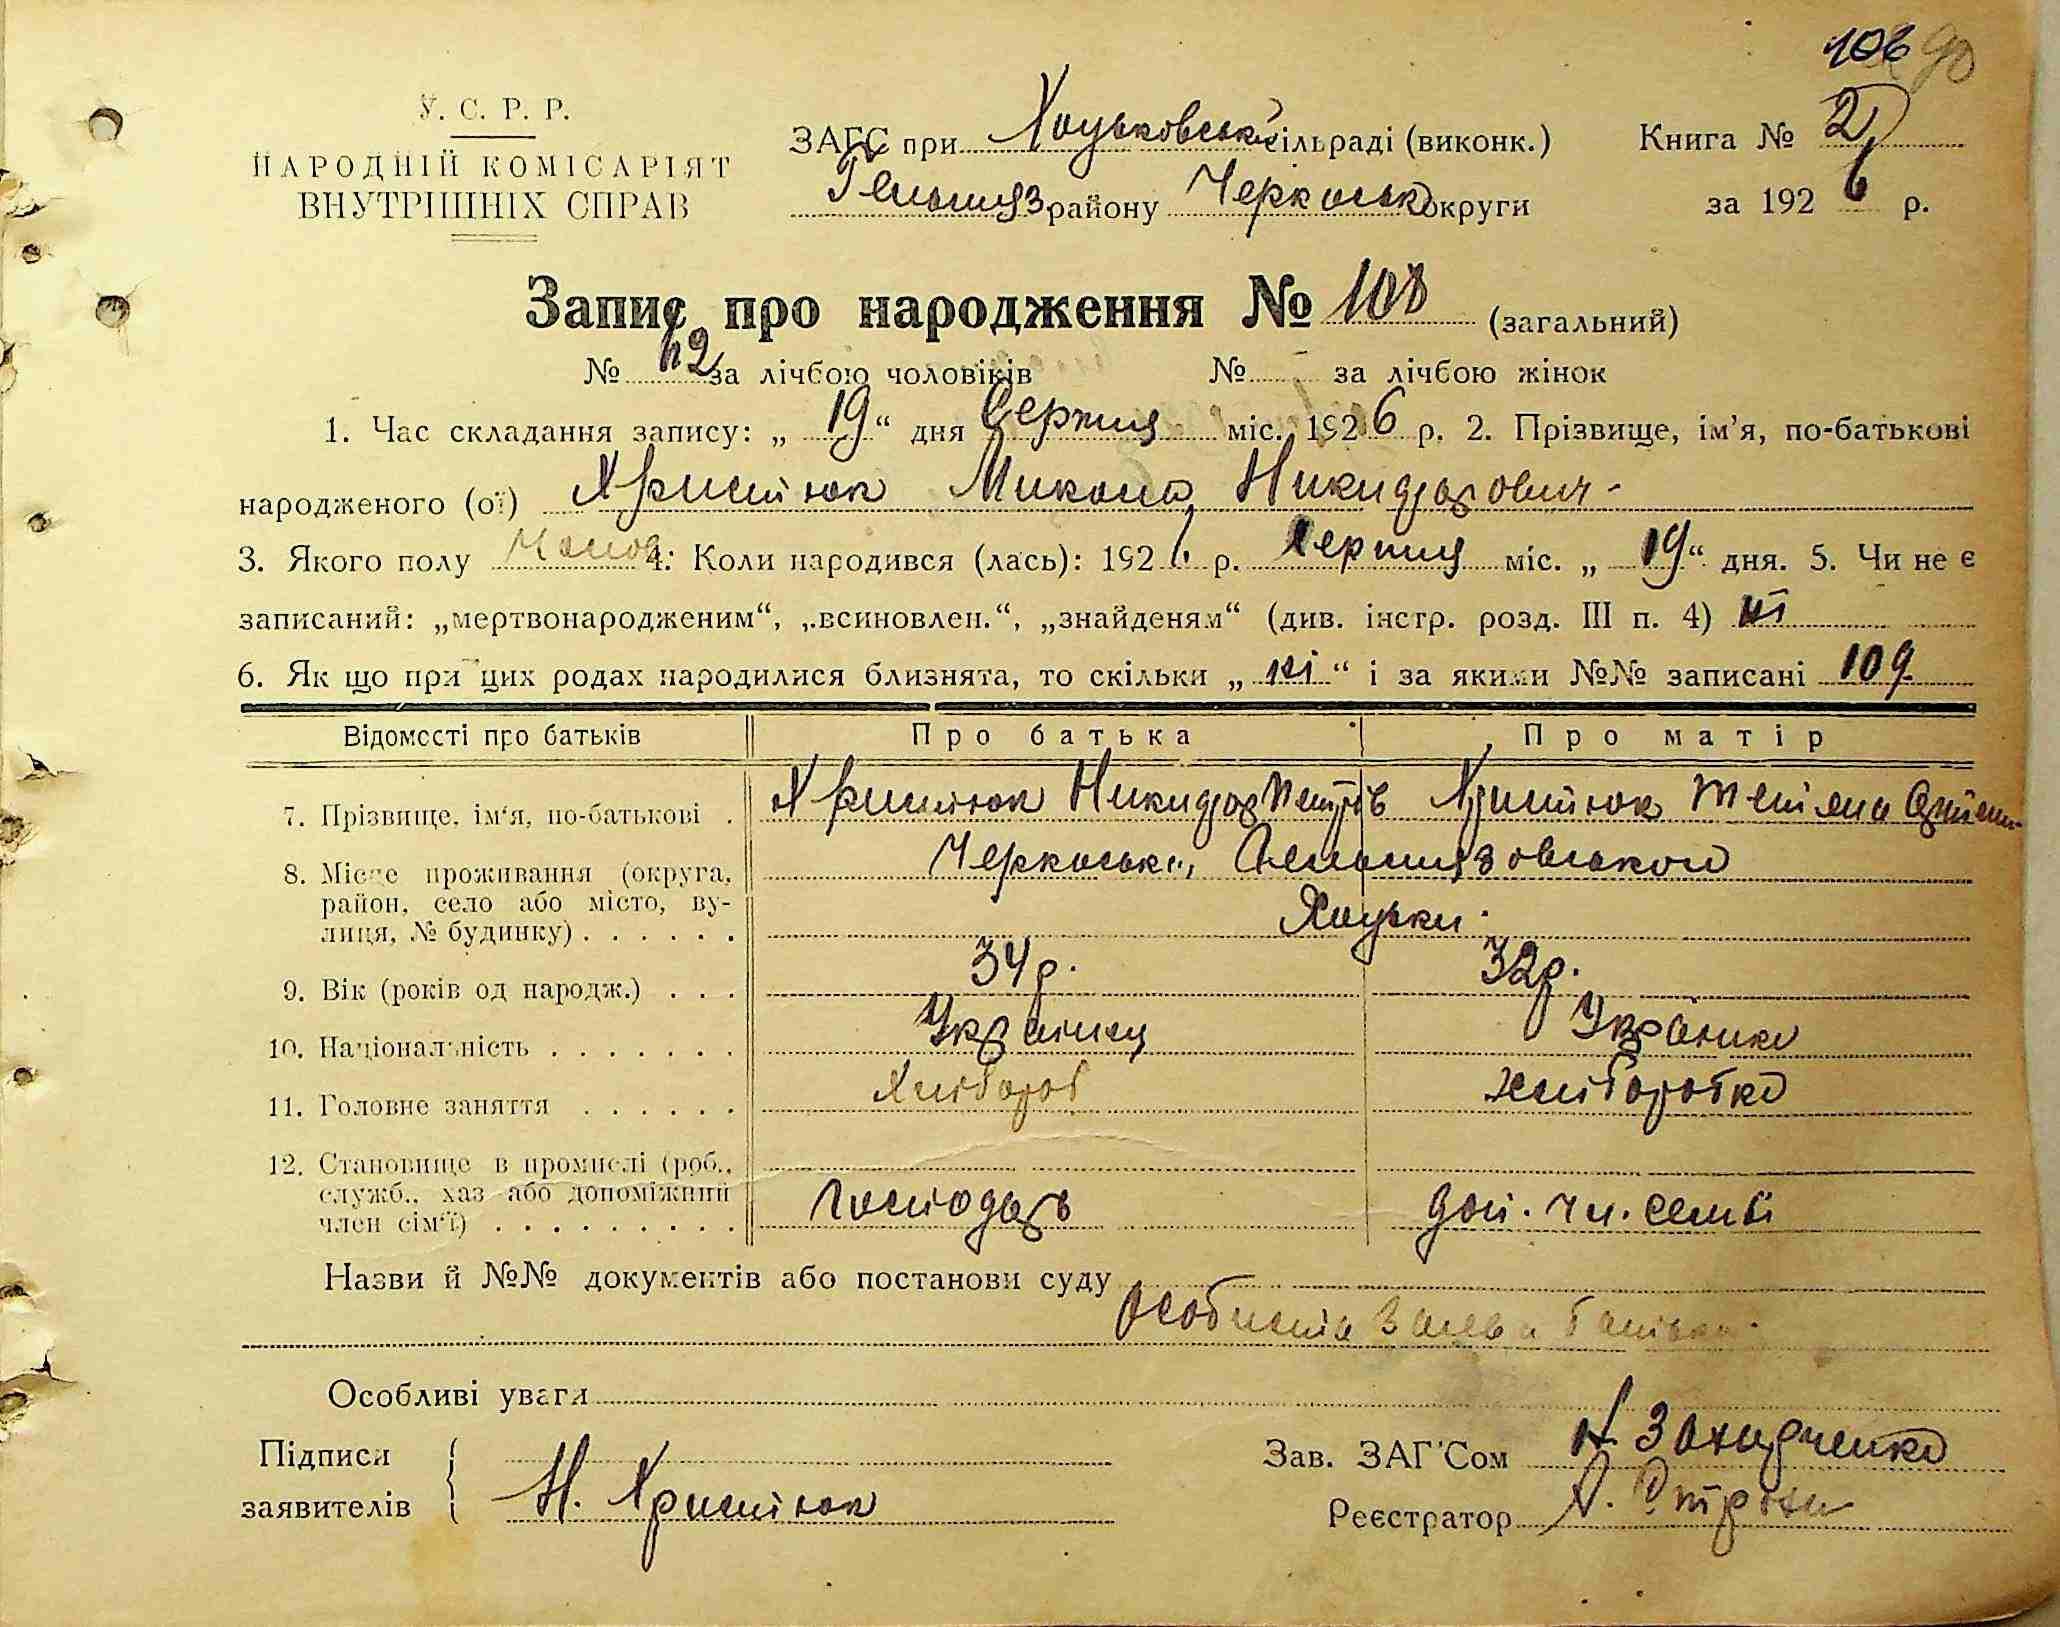 106 90
У. С. Р. Р.
НАРОДНІЙ КОМІСАРІЯТ
ВНУТРІШНІХ СПРАВ
ЗАГС при Хоцьковськ сільраді (виконк.) Книга № 2
Гельмяз району Черкаськ округи за 1926 р.
Запис про народження № 108 (загальний)
№ 62 за лічбою чоловіків № - за лічбою жінок
1. Час складання запису: „ 19 “ дня Серпня міс. 1926 р. 2. Прізвище, ім'я, по-батькові
народженого (ої) Христюк Микола Никидорович
3. Якого полу Чолов 4. Коли народився (лась): 1926 р. Серпня міс. „ 19 “ дня. 5. Чи не є
записаний: „мертвонародженим“, „всиновлен.“, „знайденям“ (див. інстр. розд. III п. 4) ні
6. Як що при цих родах народилися близнята, то скільки „ ні “ і за якими №№ записані 109
Відомості про батьків Про батька Про матір
7. Прізвище, ім'я, по-батькові . Христюк Никидор Петрів Христюк Тетяна
8. Місце проживання (округа, Черкаськ.,
район, село або місто, ву-
лиця, № будинку) . . . . . . Хоцьки
9. Вік (років од народж.) . . . 34 р. 32 р.
10. Національність . . . . . . . Українец Українка
11. Головне заняття . . . . . . Хлібороб хліборобка
12. Становище в промислі (роб.,
служб., хаз або допоміжний
член сім'ї) . . . . . . . . . Господарь доп. чл. семьї
Назви й №№ документів або постанови суду
Особиста заява батька.
Особливі уваги
Підписи Зав. ЗАГСом
заявителів { Н. Христюк Реєстратор